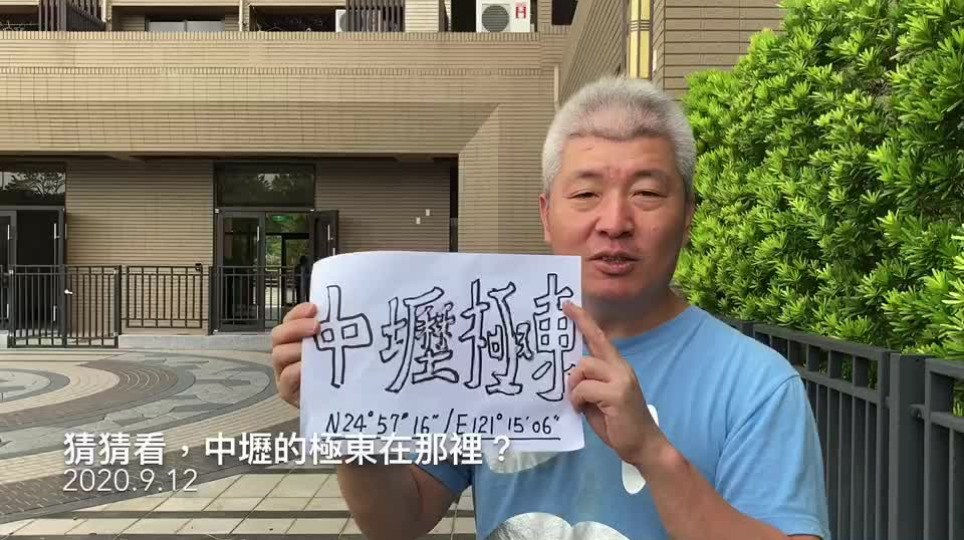 中壢極東
N24°57'16"/E121°15'06"
猜猜看，中壢的極東在那裡？
2020.9.12